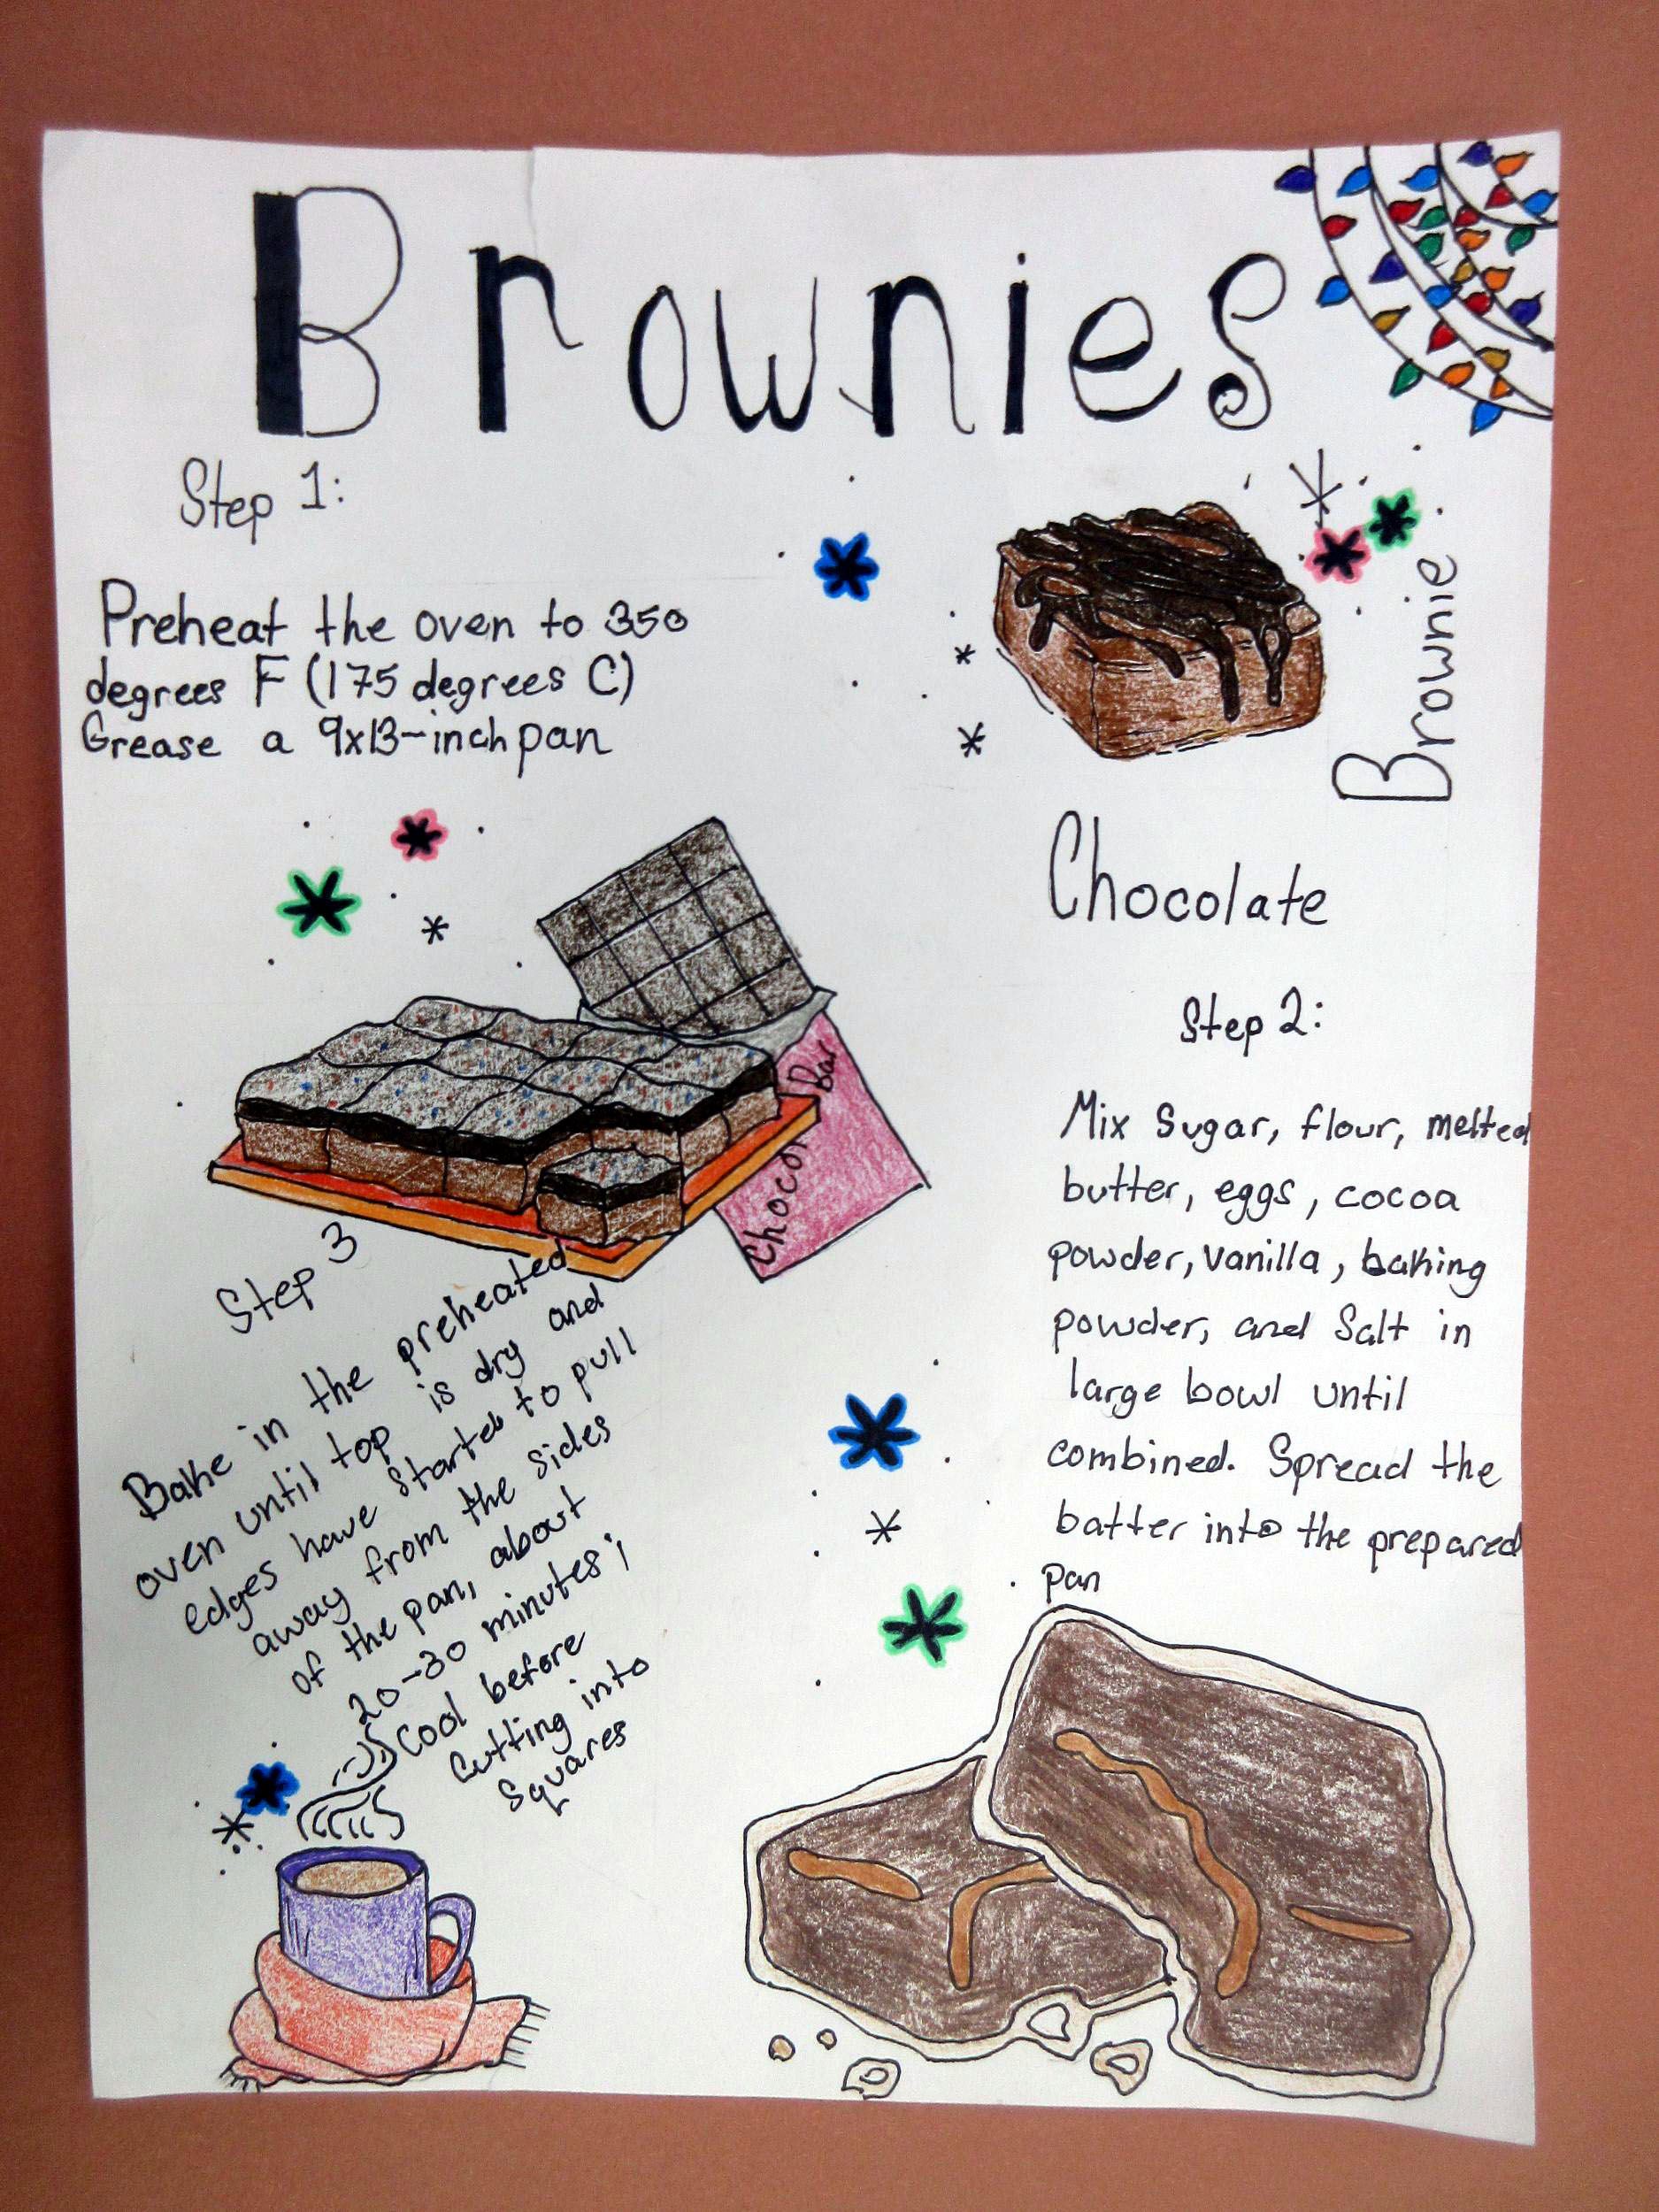 Brownies
Step 1:
Preheat the oven to 350
degrees F (175 degrees C)
Grease a 9x13-inch pan
Brownie
Chocolate
Step 2:
Mix Sugar, flour, melted
butter, eggs, cocoa
powder, vanilla, baking
powder, and Salt in
large bowl until
combined. Spread the
batter into the prepared
pan
Chocol Bar
Step 3
Bake in the preheated
oven until top is dry and
edges have started to pull
away from the sides
of the pan, about
20-30 minutes;
Cool before
Cutting into
Squares